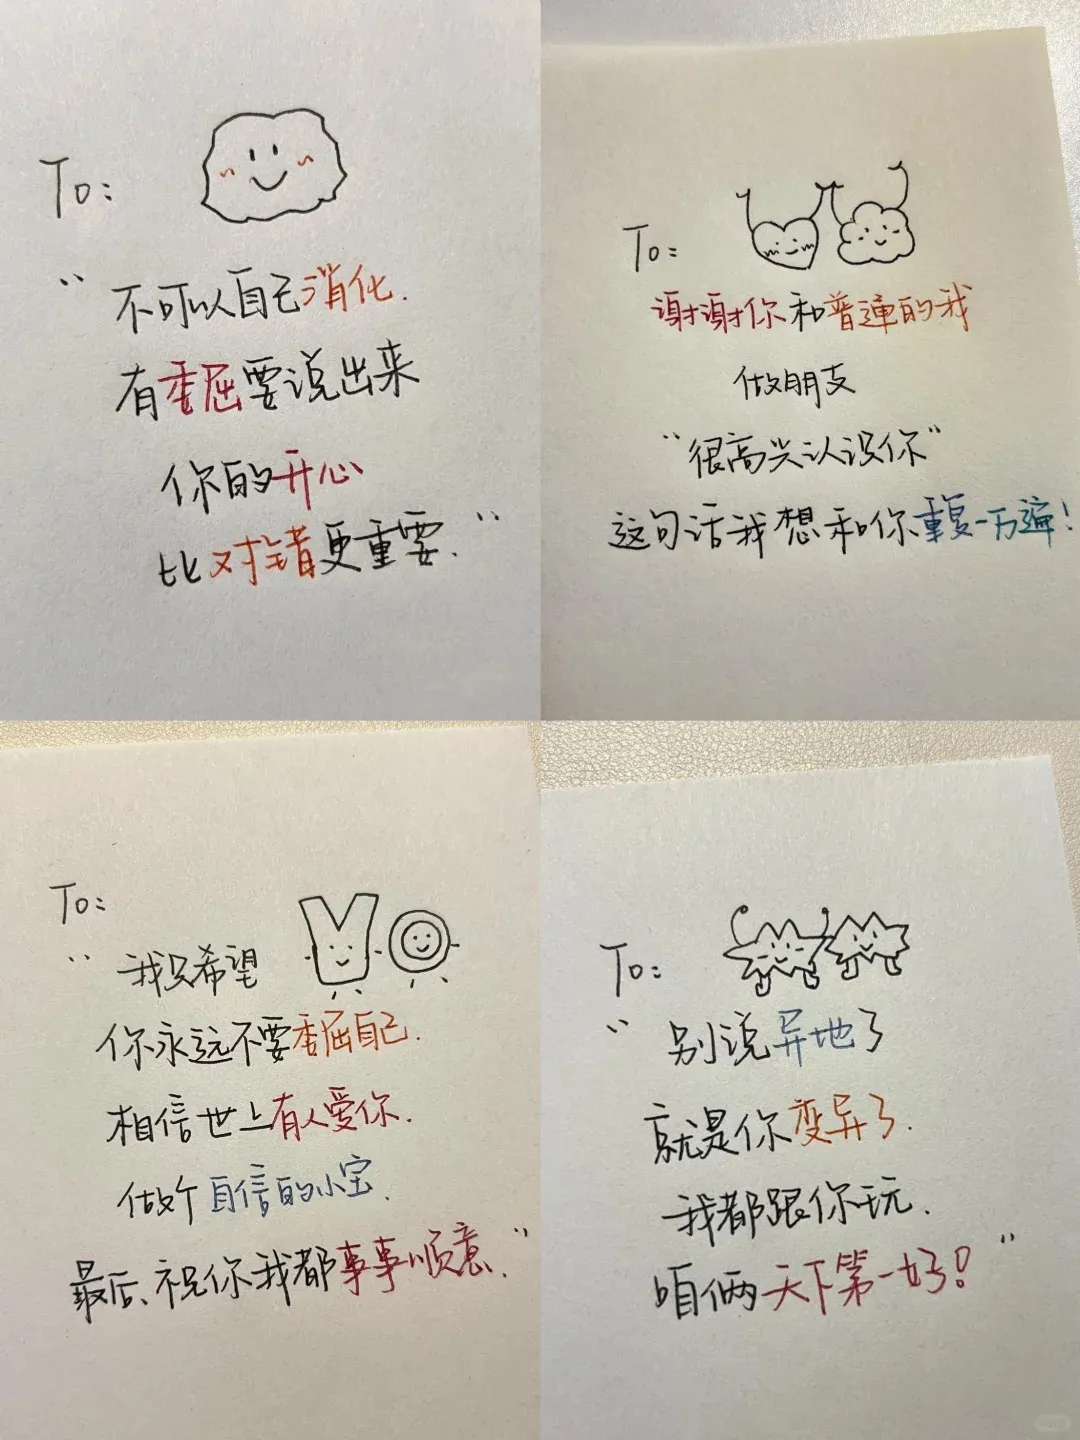 To:
“不可以自己消化.
有委屈要说出来
你的开心
比对错更重要.”
To:
谢谢你和普通的我
做朋友
“很高兴认识你”
这句话我想和你重复一万遍!
To:
“我只希望
你永远不要委屈自己.
相信世上有人爱你.
做个自信的小宝.
最后、祝你我都事事顺意.”
To:
“别说异地了
就是你变异了.
我都跟你玩.
咱俩天下第一好!”